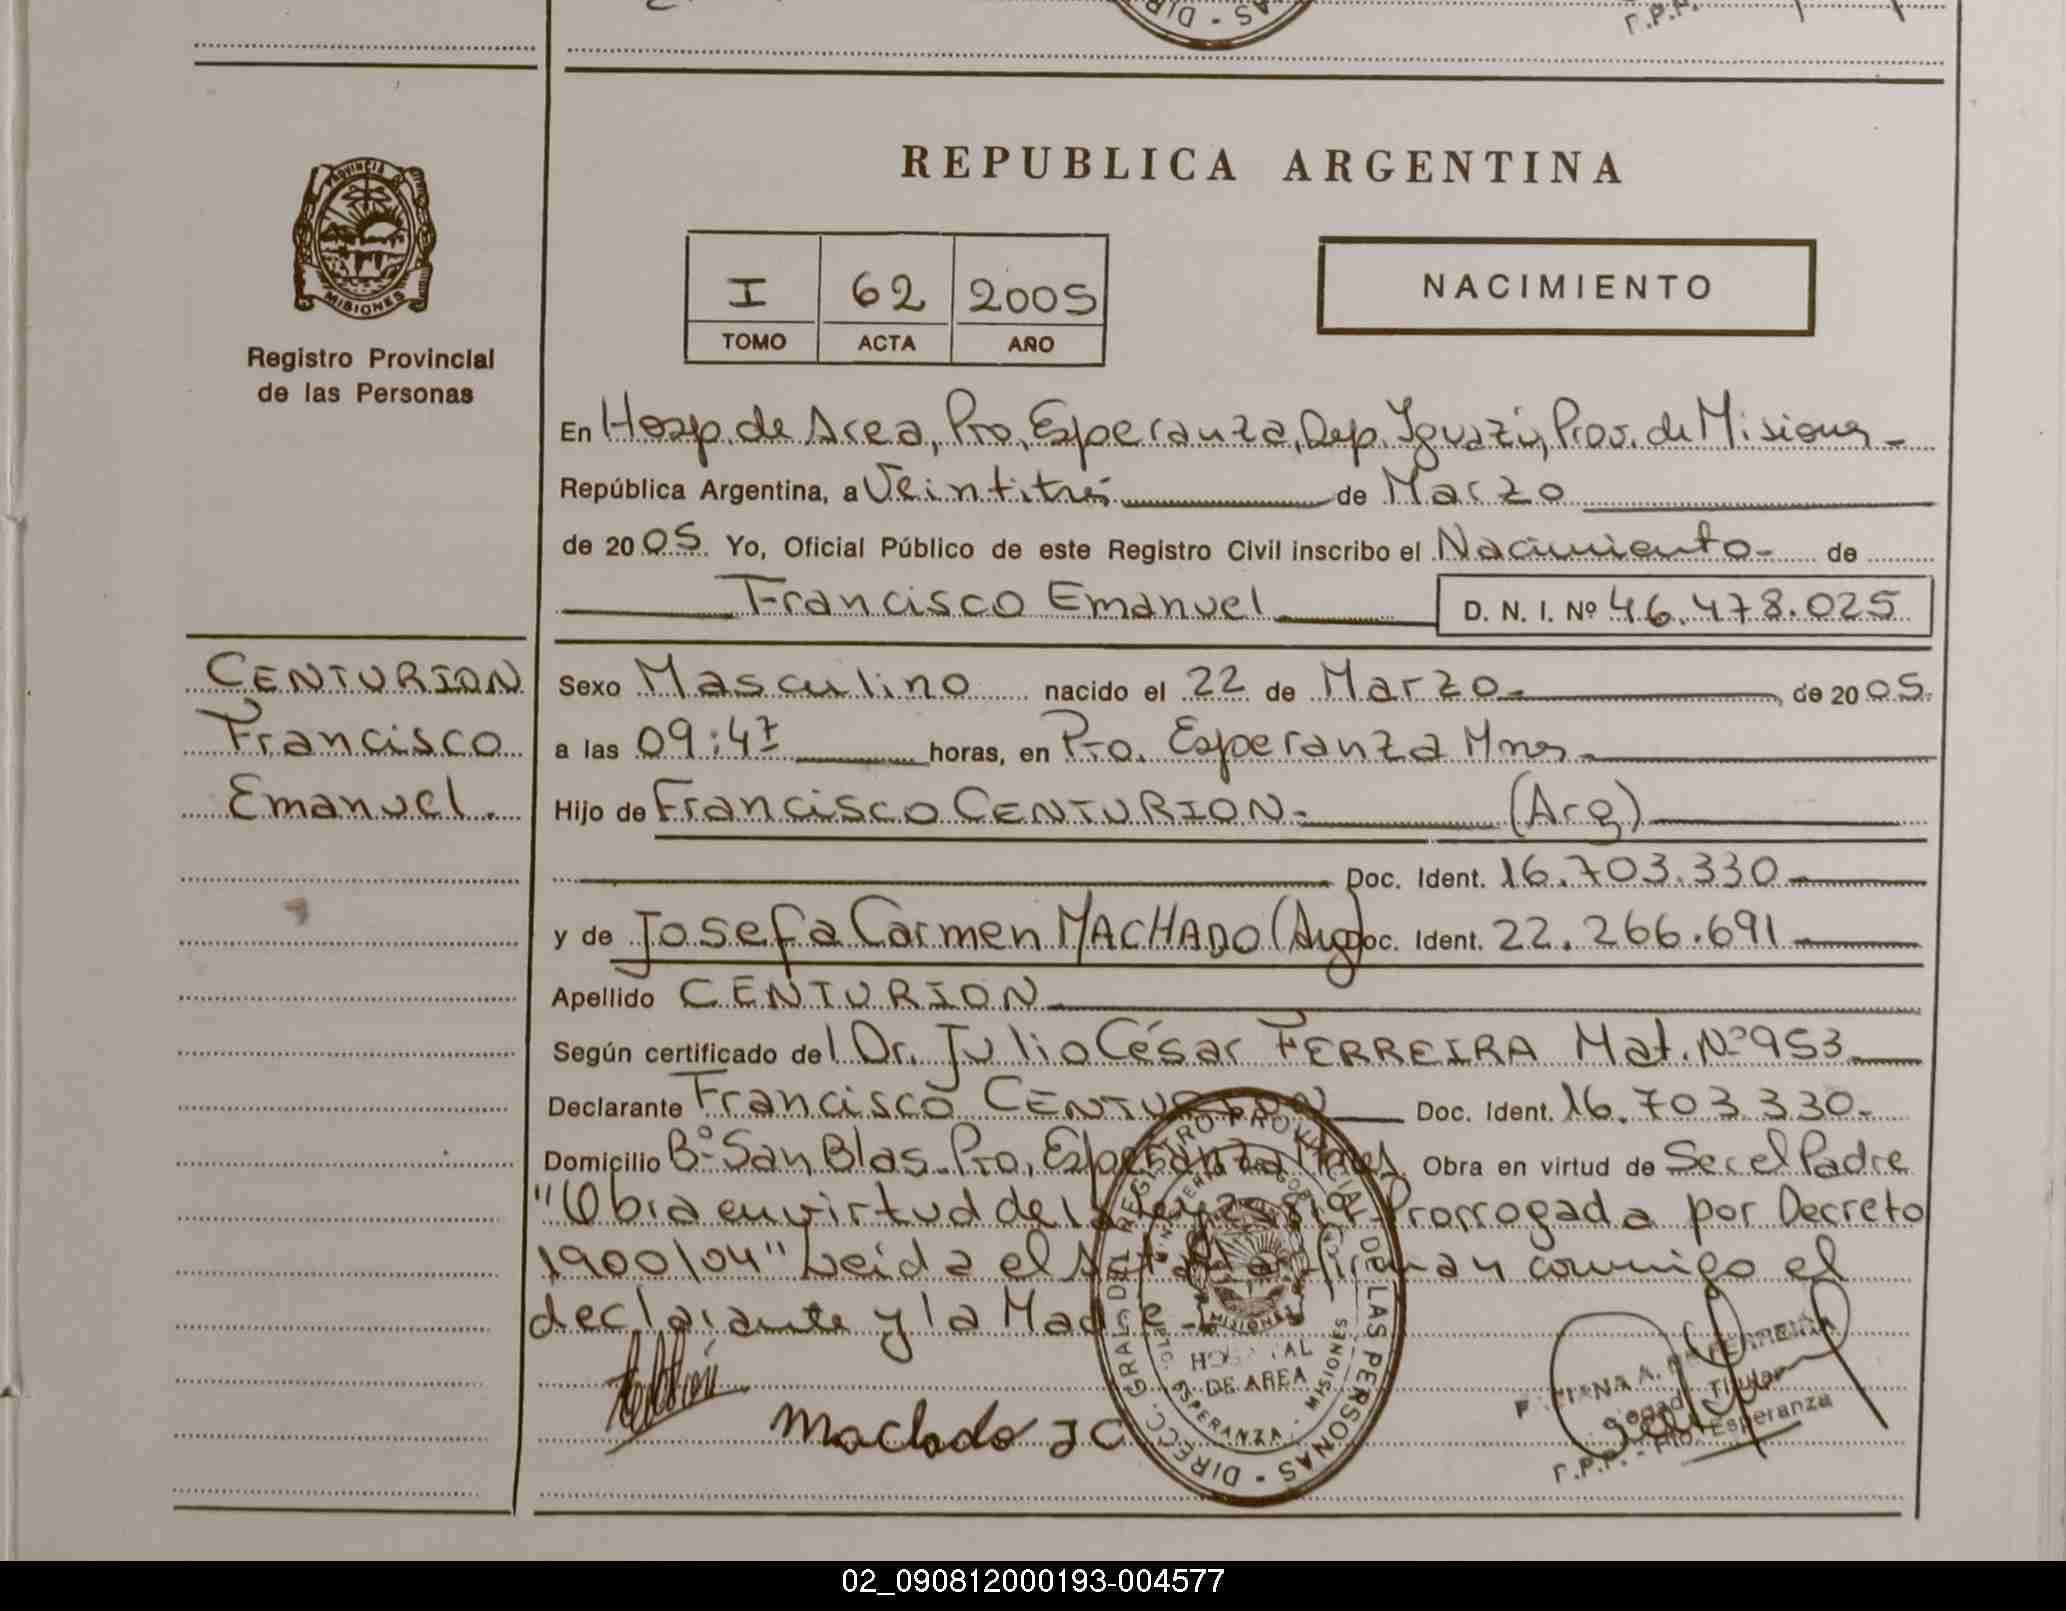 REPUBLICA ARGENTINA
PROVINCIA DE
MISIONES
Registro Provincial
de las Personas
I 62 2005
TOMO ACTA AÑO
NACIMIENTO
En Hosp. de Area, Pto. Esperanza, Dep. Iguazú, Prov. de Misiones
República Argentina, a Veintitrés de Marzo
de 2005. Yo, Oficial Público de este Registro Civil inscribo el Nacimiento de
Francisco Emanuel D. N. I. Nº 46.478.025
CENTURION
Francisco
Emanuel.
Sexo Masculino nacido el 22 de Marzo de 2005.
a las 09:47 horas, en Pto. Esperanza Mnes
Hijo de Francisco CENTURION (Arg)
Doc. Ident. 16.703.330
y de Josefa Carmen MACHADO (Arg) Doc. Ident. 22.266.691
Apellido CENTURION
Según certificado del Dr. Julio César FERREIRA Mat. Nº 953
Declarante Francisco CENTURION Doc. Ident. 16.703.330
Domicilio Bº San Blas Pto. Esperanza Mnes Obra en virtud de Ser el Padre
"Obra en virtud de la Ley Prorrogada por Decreto
1900/04" Leida el Acta la firman conmigo el
declarante y la Madre
Machado J C
DIRECC. GRAL. DEL REGISTRO PROVINCIAL DE LAS PERSONAS
MISIONES
HOSPITAL
DE AREA
ESPERANZA - MISIONES
Titular
R.P.P. - Pto. Esperanza
02_090812000193-004577